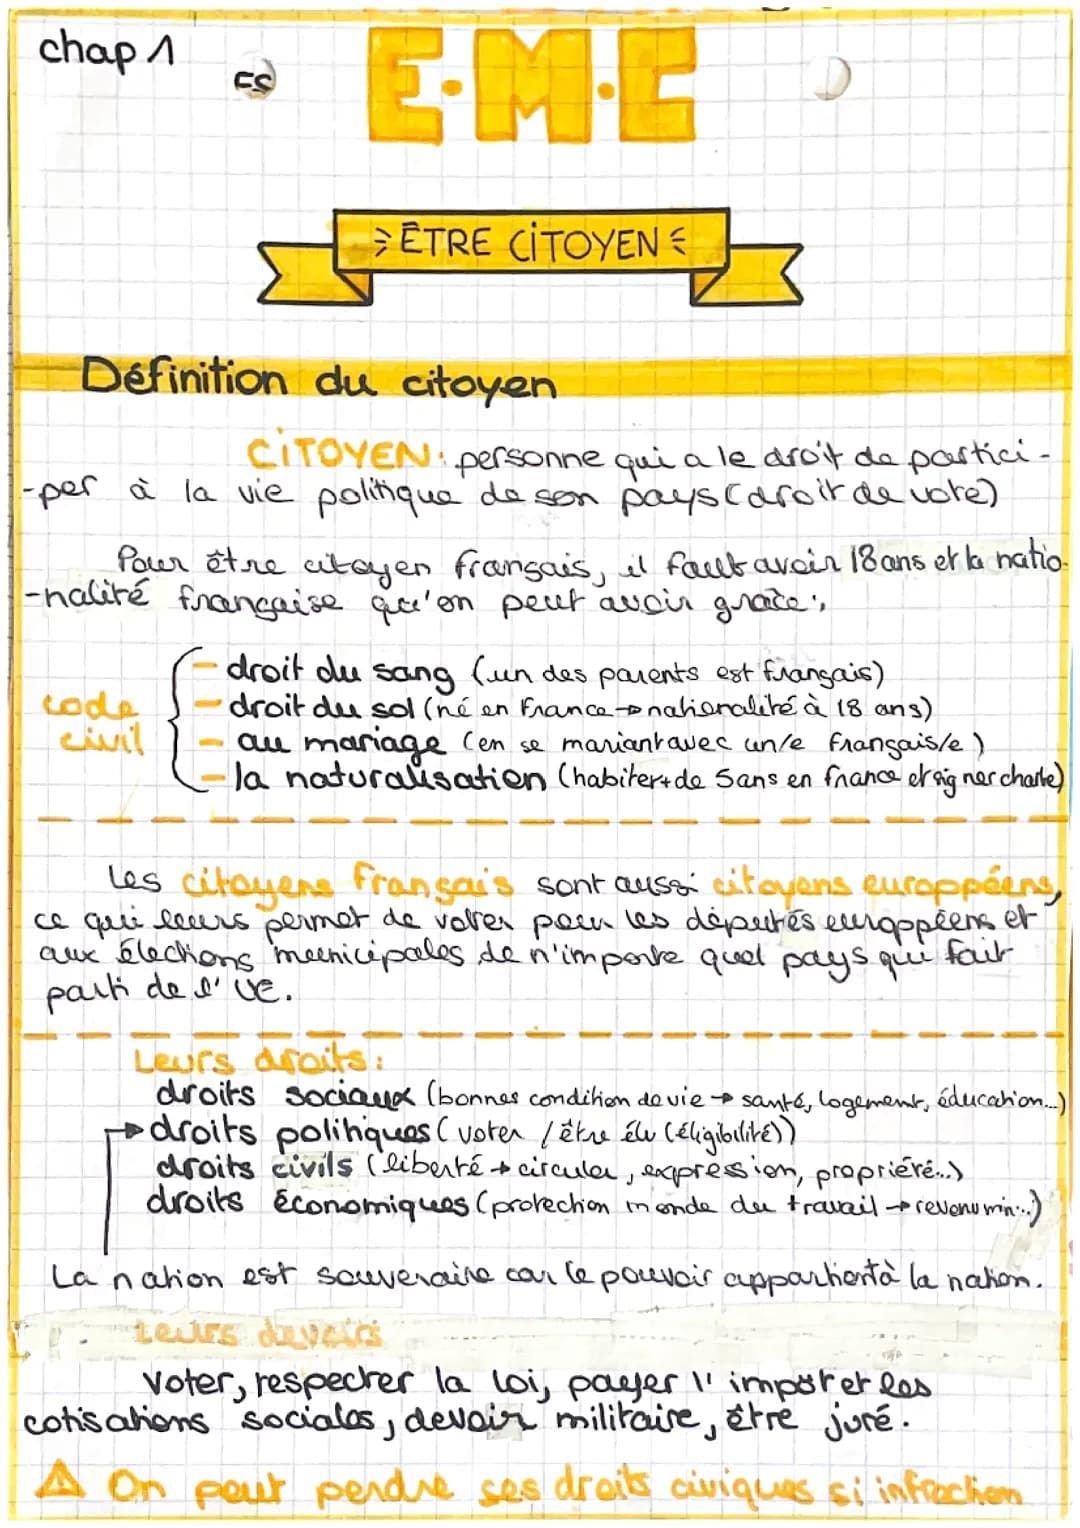 chap 1
E.M.C
ÊTRE CITOYEN
Définition du citoyen
CITOYEN: personne qui a le droit de partici-
-per à la vie politique de son pays (droit de vote)
Pour être citoyen français, il faut avoir 18 ans et la natio-
-nalité française qu'on peut avoir grâce:
- droit du sang (un des parents est français)
- droit du sol (né en France → nationalité à 18 ans)
code civil
- au mariage (en se mariant avec un/e français/e)
- la naturalisation (habiter + de 5 ans en france et signer charte)
Les citoyens français sont aussi citoyens europpéens,
ce qui leurs permet de voter pour les députés europpéens et
aux élections municipales de n'importe quel pays qui fait
parti de l'UE.
Leurs droits:
droits sociaux (bonnes condition de vie → santé, logement, éducation...)
→ droits politiques (voter / être élu (éligibilité))
droits civils (liberté → circuler, expression, propriété...)
droits économiques (protection monde du travail → revenu min...)
La nation est souveraine car le pouvoir appartient à la nation.
Leurs devoirs
Voter, respecter la loi, payer l'impôt et les
cotisations sociales, devoir militaire, être juré.
⚠ On peut perdre ses droits civiques si infraction